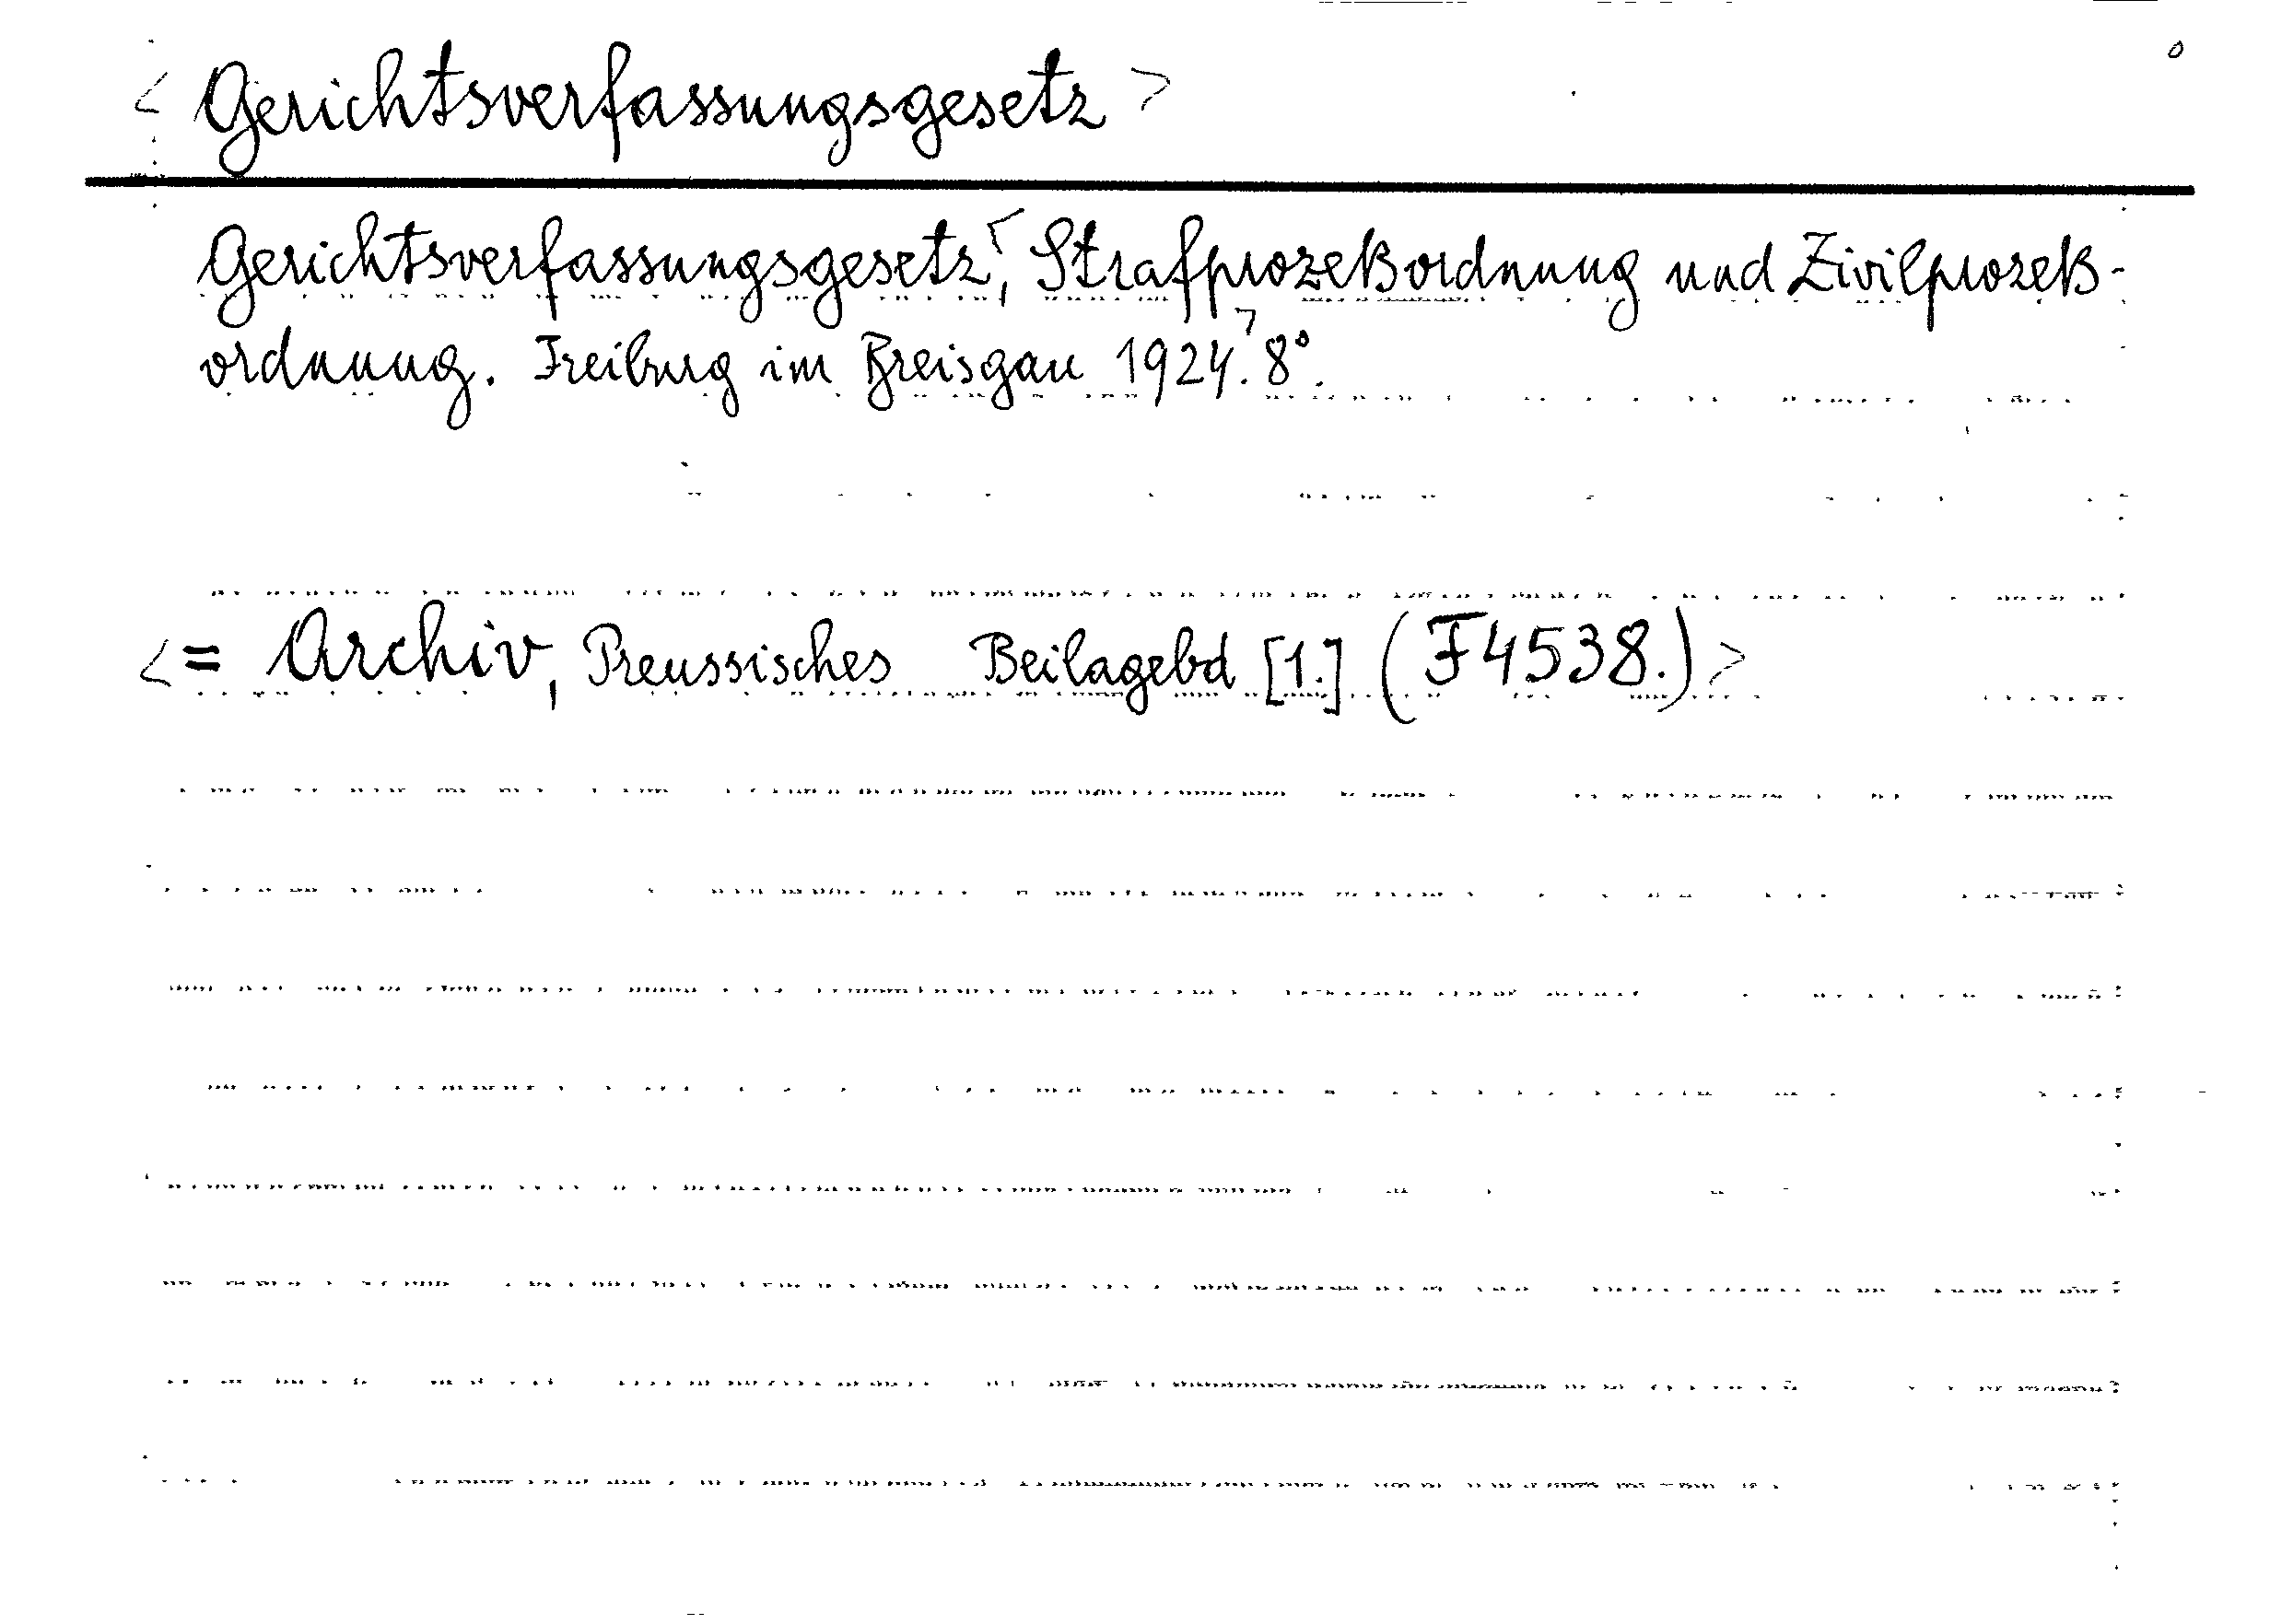 < Gerichtsverfassungsgesetz >
Gerichtsverfassungsgesetz<, Strafprozeßordnung und Zivilprozeß-
ordnung. Freiburg im Breisgau 1924>. 8°.
<= Archiv, Preussisches Beilagebd [1.] (F4538.)>